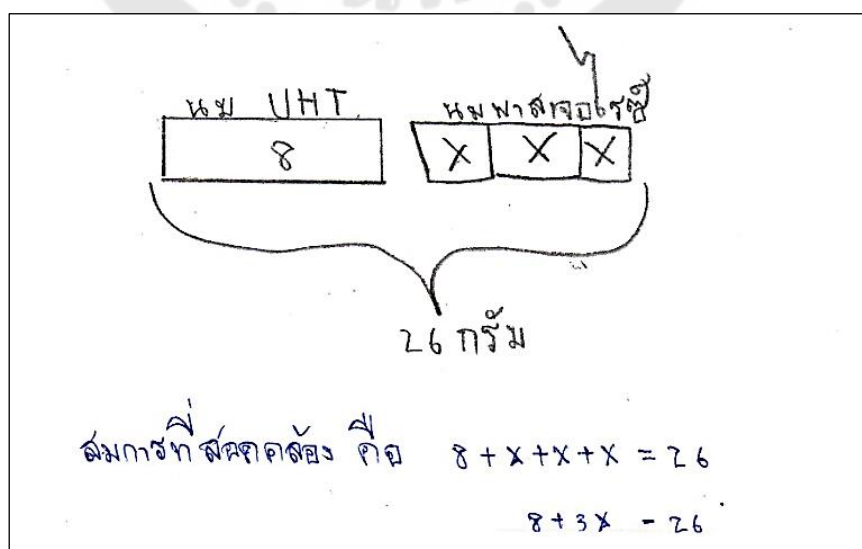 นม UHT นมพาสเจอไรซ์
8 X X X
26 กรัม
สมการที่สอดคล้อง คือ 8 + X + X + X = 26
8 + 3X = 26